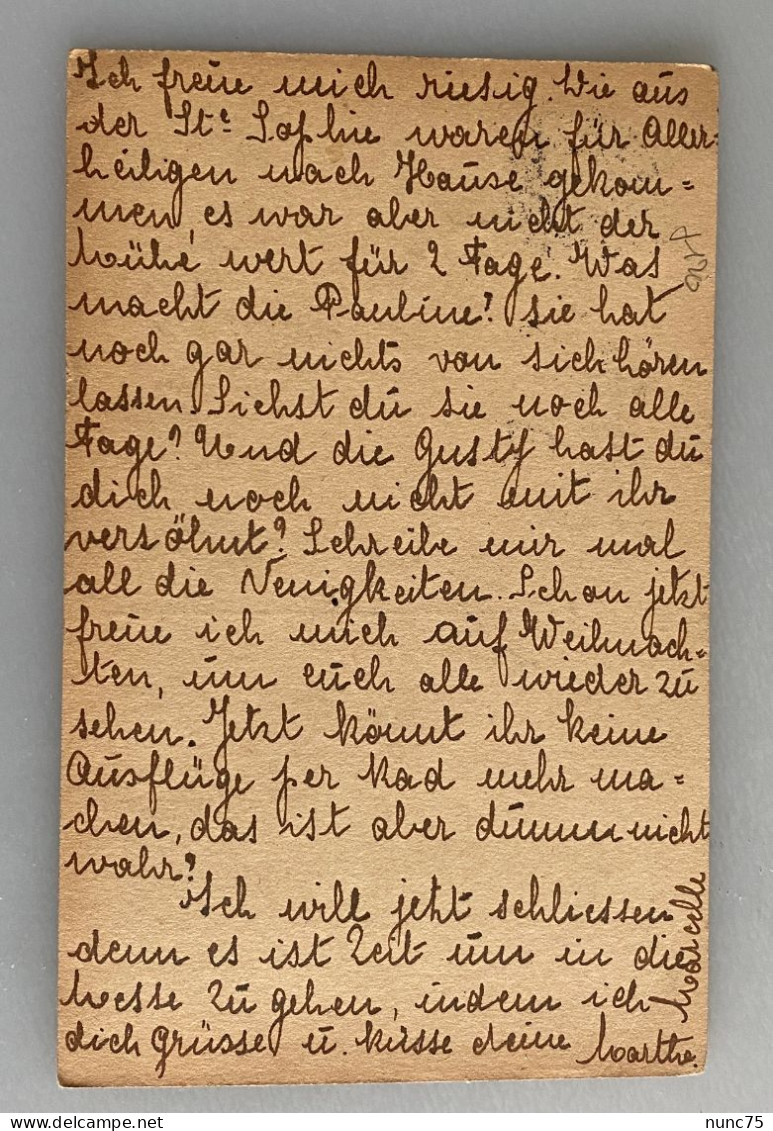 Ich freue mich riesig. Wie aus
der Ste Sophie waren für Aller-
heiligen nach Hause gekom=
men, es war aber nicht der
Mühe wert für 2 Tage. Was
macht die Pauline? Sie hat
noch gar nichts von sich hören
lassen. Siehst du sie noch alle
Tage? Und die Gusty hast du
dich noch nicht mit ihr
versöhnt? Schreibe mir mal
all die Neuigkeiten. Schon jetzt
freue ich mich auf Weihnach=
ten, um euch alle wieder zu
sehen. Jetzt könnt ihr keine
Ausflüge per Rad mehr ma=
chen, das ist aber dumm nicht
wahr?
Ich will jetzt schliessen
denn es ist Zeit um in die
Messe zu gehen, indem ich
dich grüsse u. küsse deine Marthe.
Marcelle
nunc75